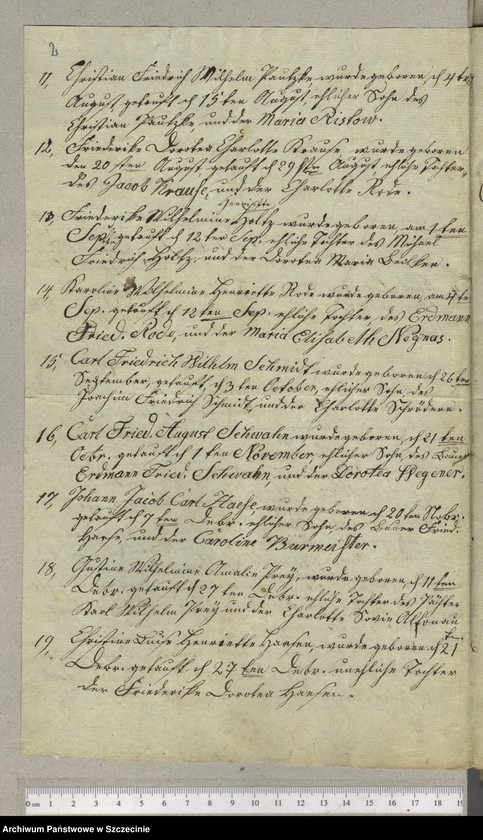 2
11, Christian Friedrich Wilhelm Pautzke wurde geboren, d 4 ten
August, getauft d 15 ten August, ehlicher Sohn des
Christian Pautzke, und der Maria Ristow.
12, Friederike Dorotea Charlotte Krause wurde geboren
den 20 sten August getauft d 29 sten August, ehliche Tochter,
des Jacob Krause, und der Charlotte Rode.
Henriette
13, Friederike Wilhelmine Holtz wurde geboren, am 1 ten
Sep. getauft d 12 ten Sep. ehliche Tochter des Michael
Friedrich Holtz, und der Dorotea Maria
14, Karoline Wilhelmine Henriette Rode wurde geboren, am 4 te
Sep. getauft d 12 ten Sep. ehliche Tochter des Erdmann
Fried. Rode, und der Maria Elisabeth Negnas.
15, Carl Friedrich Wilhelm Schmidt wurde geboren d 26 ten
September, getauft, d 3 ten October, ehlicher Sohn des
Joachim Friedrich Schmidt, und der Charlotte Schrödern.
16, Carl Fried. August Schwahn wurde geboren, d 21 ten
Octbr. getauft d 1 ten November, ehlicher Sohn des Bauer
Erdmann Fried. Schwahn und der Dorotea Wegener.
17, Johann Jacob Carl Haese wurde geboren d 20 ten Nobr.
getauft d 7 ten Debr. ehlicher Sohn des Bauer Fried.
Haese, und der Caroline Burmeister.
18, Justine Wilhelmine Amalie Prey, wurde geboren, d 11 ten
Debr. getauft d 27 ten Debr. ehliche Tochter des Pächter
Karl Wilhelm Prey und der Charlotte Sovie
19, Christine Luise Henriette Haesen, wurde geboren d 21 ten
Debr. getauft d 27 ten Debr. unehliche Tochter
der Friederike Dorotea Haesen.
0 cm 1 2 3 4 5 6 7 8 9 10 11 12 13 14 15 16 17 18 19
Archiwum Państwowe w Szczecinie